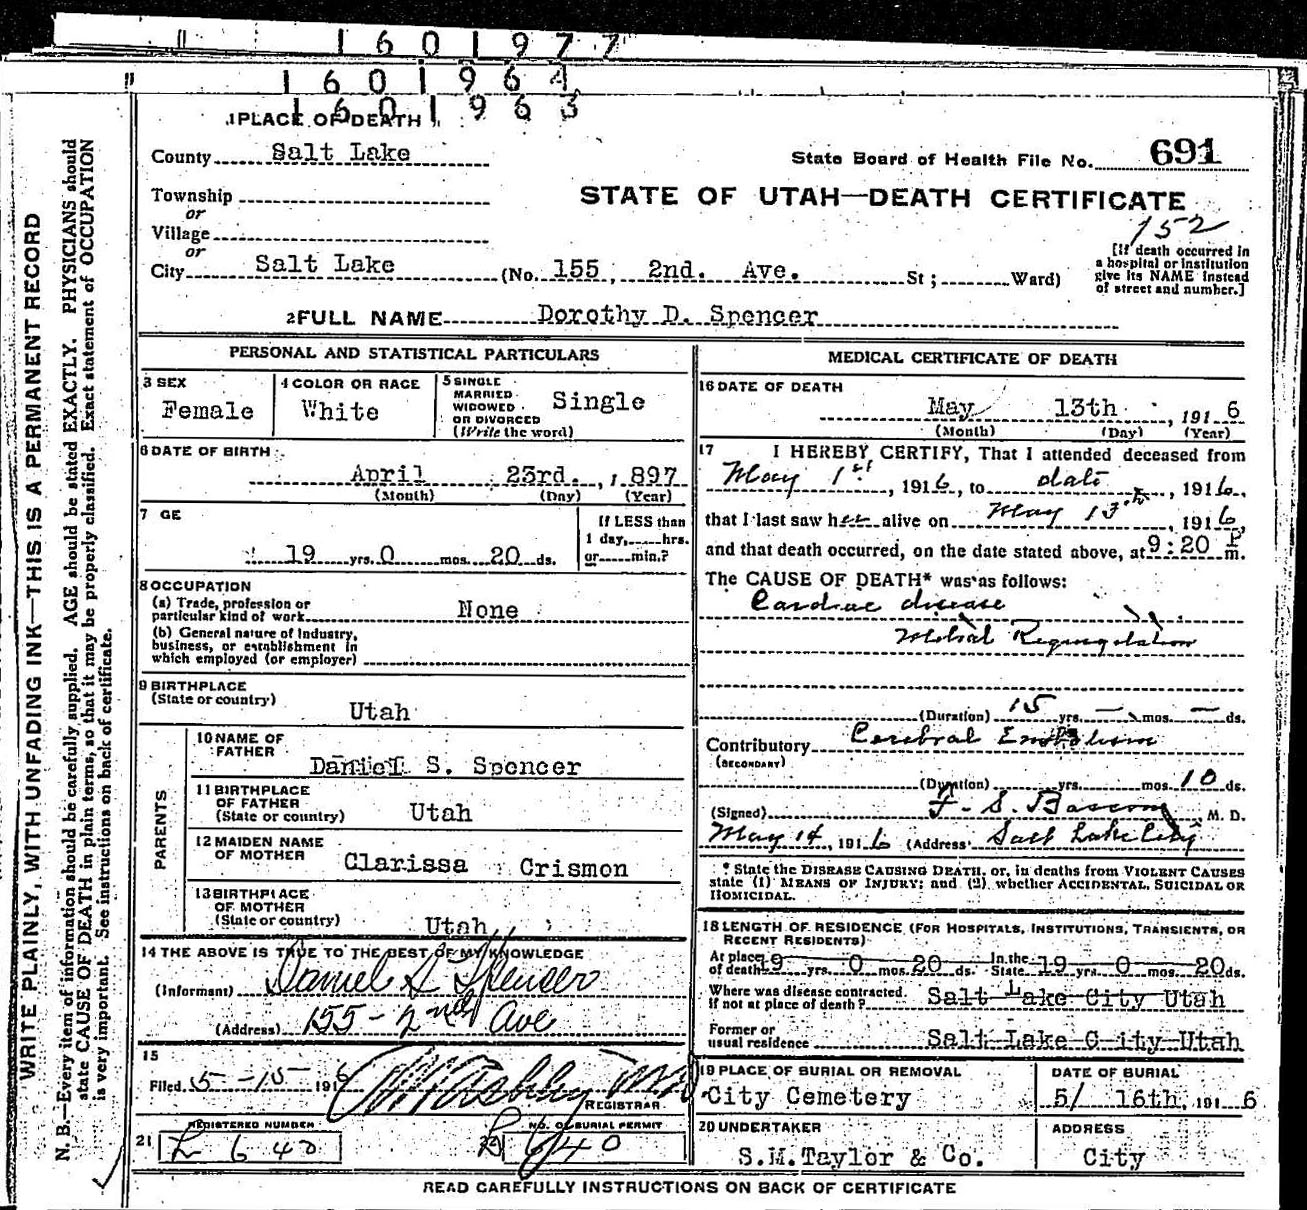 1601977
1601964
1601963
1 PLACE OF DEATH
County Salt Lake
State Board of Health File No. 691
Township
or
Village
or
STATE OF UTAH—DEATH CERTIFICATE
152
City Salt Lake (No. 155, 2nd. Ave. St; Ward)
[If death occurred in
a hospital or institution
give its NAME instead
of street and number.]
2 FULL NAME Dorothy D. Spencer
PERSONAL AND STATISTICAL PARTICULARS
3 SEX
Female
4 COLOR OR RACE
White
5 SINGLE
MARRIED
WIDOWED
OR DIVORCED
(Write the word)
Single
6 DATE OF BIRTH
April 23rd. , 1 897
(Month) (Day) (Year)
7 GE
19 yrs. 0 mos. 20 ds.
If LESS than
1 day, hrs.
or min.?
8 OCCUPATION
(a) Trade, profession or
particular kind of work None
(b) General nature of Industry,
business, or establishment in
which employed (or employer)
9 BIRTHPLACE
(State or country)
Utah
PARENTS
10 NAME OF
FATHER
Daniel S. Spencer
11 BIRTHPLACE
OF FATHER
(State or country) Utah
12 MAIDEN NAME
OF MOTHER Clarissa Crismon
13 BIRTHPLACE
OF MOTHER
(State or country) Utah
14 THE ABOVE IS TRUE TO THE BEST OF MY KNOWLEDGE
(Informant) Daniel S Spencer
(Address) 155 - 2nd Ave
15
Filed 5-15- 1916
REGISTRAR
21 REGISTERED NUMBER
L 640
NO. OF BURIAL PERMIT
640
MEDICAL CERTIFICATE OF DEATH
16 DATE OF DEATH
May 13th , 191 6
(Month) (Day) (Year)
17 I HEREBY CERTIFY, That I attended deceased from
May 1st, 1916, to date, 1916.,
that I last saw her alive on May 13th, 1916,
and that death occurred, on the date stated above, at 9:20 P m.
The CAUSE OF DEATH* was as follows:
Cardiac disease
Mitral Regurgitation
(Duration) 15 yrs. — mos. — ds.
Contributory Cerebral Embolism
(SECONDARY)
(Duration) yrs. mos. 10 ds.
(Signed) F. S. Bascom M. D.
May 14, 1916 (Address) Salt Lake City
* State the DISEASE CAUSING DEATH, or, in deaths from VIOLENT CAUSES
state (1) MEANS OF INJURY; and (2) whether ACCIDENTAL, SUICIDAL OR
HOMICIDAL.
18 LENGTH OF RESIDENCE (FOR HOSPITALS, INSTITUTIONS, TRANSIENTS, OR
RECENT RESIDENTS)
At place
of death 19 yrs. 0 mos. 20 ds. In the
State 19 yrs. 0 mos. 20 ds.
Where was disease contracted.
if not at place of death? Salt Lake City Utah
Former or
usual residence Salt Lake City Utah
19 PLACE OF BURIAL OR REMOVAL
City Cemetery
DATE OF BURIAL
5/ 16th, 191 6
20 UNDERTAKER
S.M. Taylor & Co.
ADDRESS
City
READ CAREFULLY INSTRUCTIONS ON BACK OF CERTIFICATE
WRITE PLAINLY, WITH UNFADING INK—THIS IS A PERMANENT RECORD
N. B.—Every item of information should be carefully supplied. AGE should be stated EXACTLY. PHYSICIANS should
state CAUSE OF DEATH in plain terms, so that it may be properly classified. Exact statement of OCCUPATION
is very important. See instructions on back of certificate.